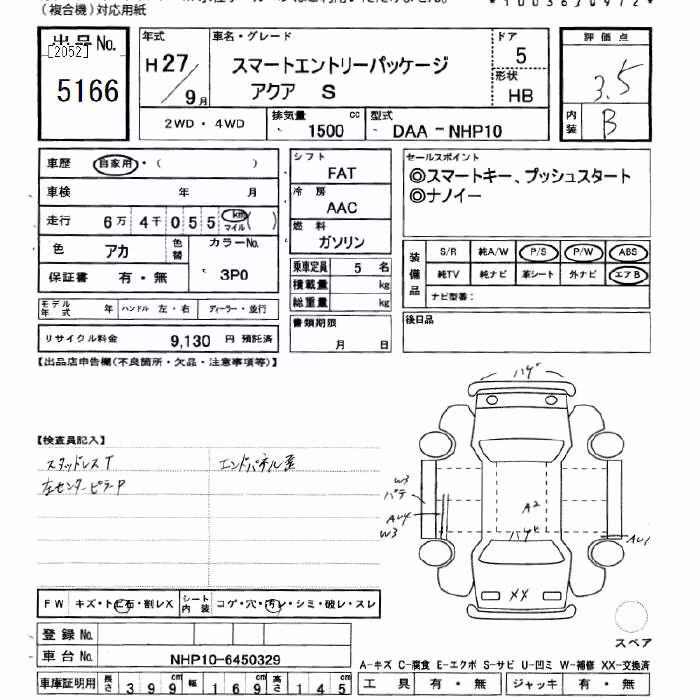 (複合機)対応用紙
*1003630972*
出品No.
[2052]
5166
年式
H27/9月
車名・グレード
スマートエントリーパッケージ
アクア S
ドア
5
形状
HB
2WD・4WD
排気量
1500 cc
型式
DAA-NHP10
評価点
3.5
内装
B
車歴 自家用・( )
車検 年 月
走行 6万4千055 km マイル ( )
色 アカ 色替 カラーNo.
3P0
保証書 有・無
モデル年式 年 ハンドル 左・右 ディーラー・並行
リサイクル料金 9,130 円 預託済
シフト
FAT
冷房
AAC
燃料
ガソリン
乗車定員 5 名
積載量 kg
総重量 kg
書類期限
月 日
セールスポイント
◎スマートキー、プッシュスタート
◎ナノイー
装備品
S/R 純A/W P/S P/W ABS
純TV 純ナビ 革シート 外ナビ エアB
ナビ型番:
後日品
【出品店申告欄(不良箇所・欠品・注意事項等)】
【検査員記入】
スタッドレスT
エンドパネル歪
左センターピラーP
ハゲ
W3
パテ
AU4
W3
A2
AU1
XX
FW キズ・トビ石・割レX シート内装 コゲ・穴・汚レ・シミ・破レ・スレ
登録No.
車台No. NHP10-6450329
車庫証明用 長さ 399 幅 169 高さ 145
スペア
A-キズ C-腐食 E-エクボ S-サビ U-凹ミ W-補修 XX-交換済
工具 有・無 ジャッキ 有・無